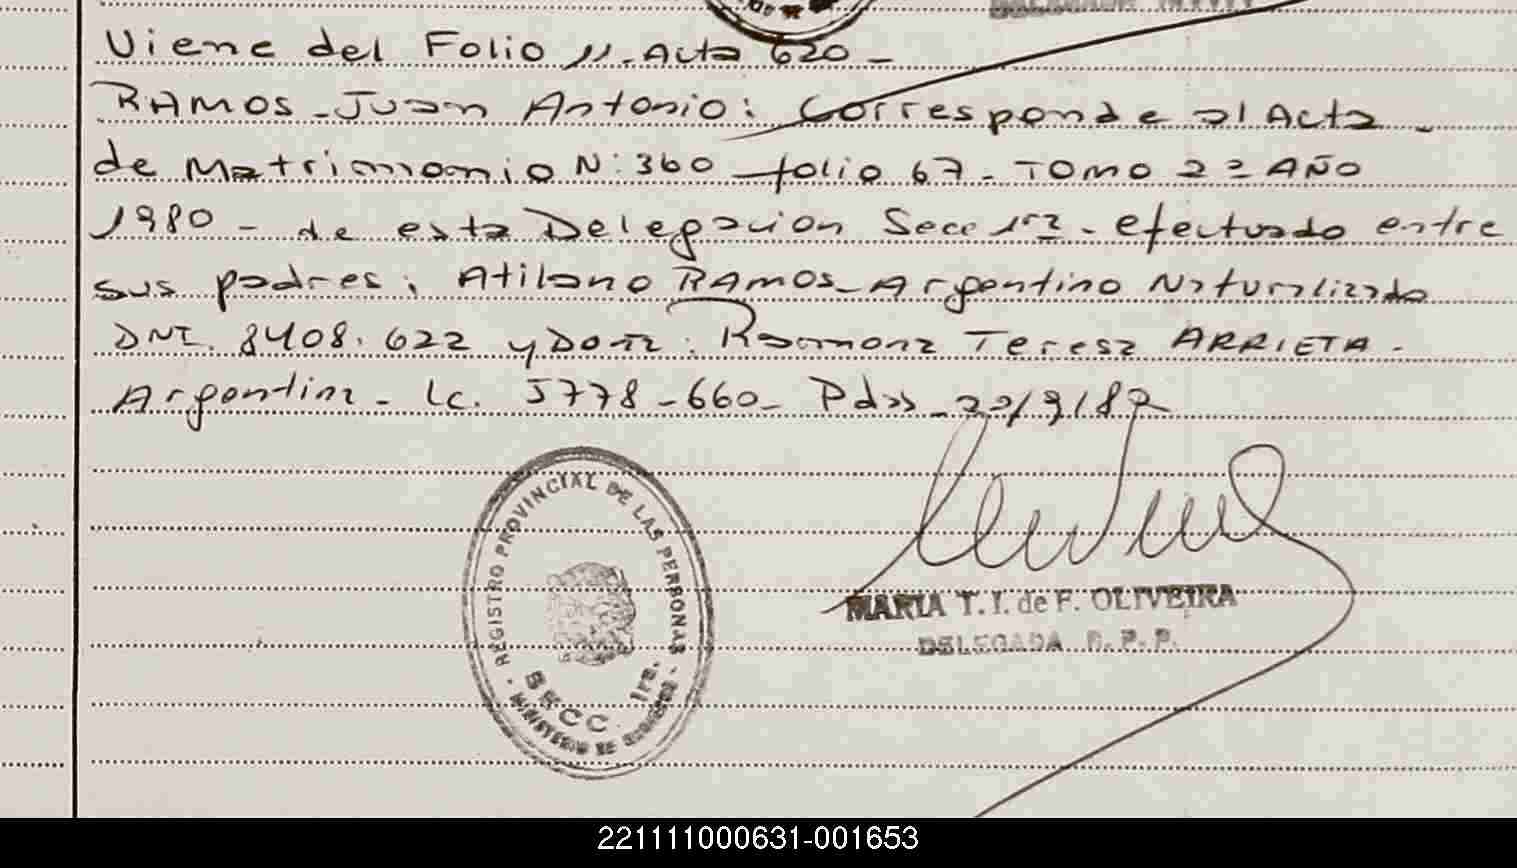 Viene del Folio 11. Acta 620 -
RAMOS - Juan Antonio: Corresponde al Acta -
de Matrimonio N: 360 folio 67 - TOMO 2º AÑO
1980 - de esta Delegacion Secc 1ra - efectuado entre
sus padres: Atilano RAMOS - Argentino Naturalizado
DNI. 8408.622 y Doña: Ramona Teresa ARRIETA -
Argentina - lc. 5778-660 - Pdas - 22/9/82
REGISTRO PROVINCIAL DE LAS PERSONAS
SECC. 1ra.
MINISTERIO DE GOBIERNO
MARIA T. I. de F. OLIVEIRA
DELEGADA R. P. P.
221111000631-001653